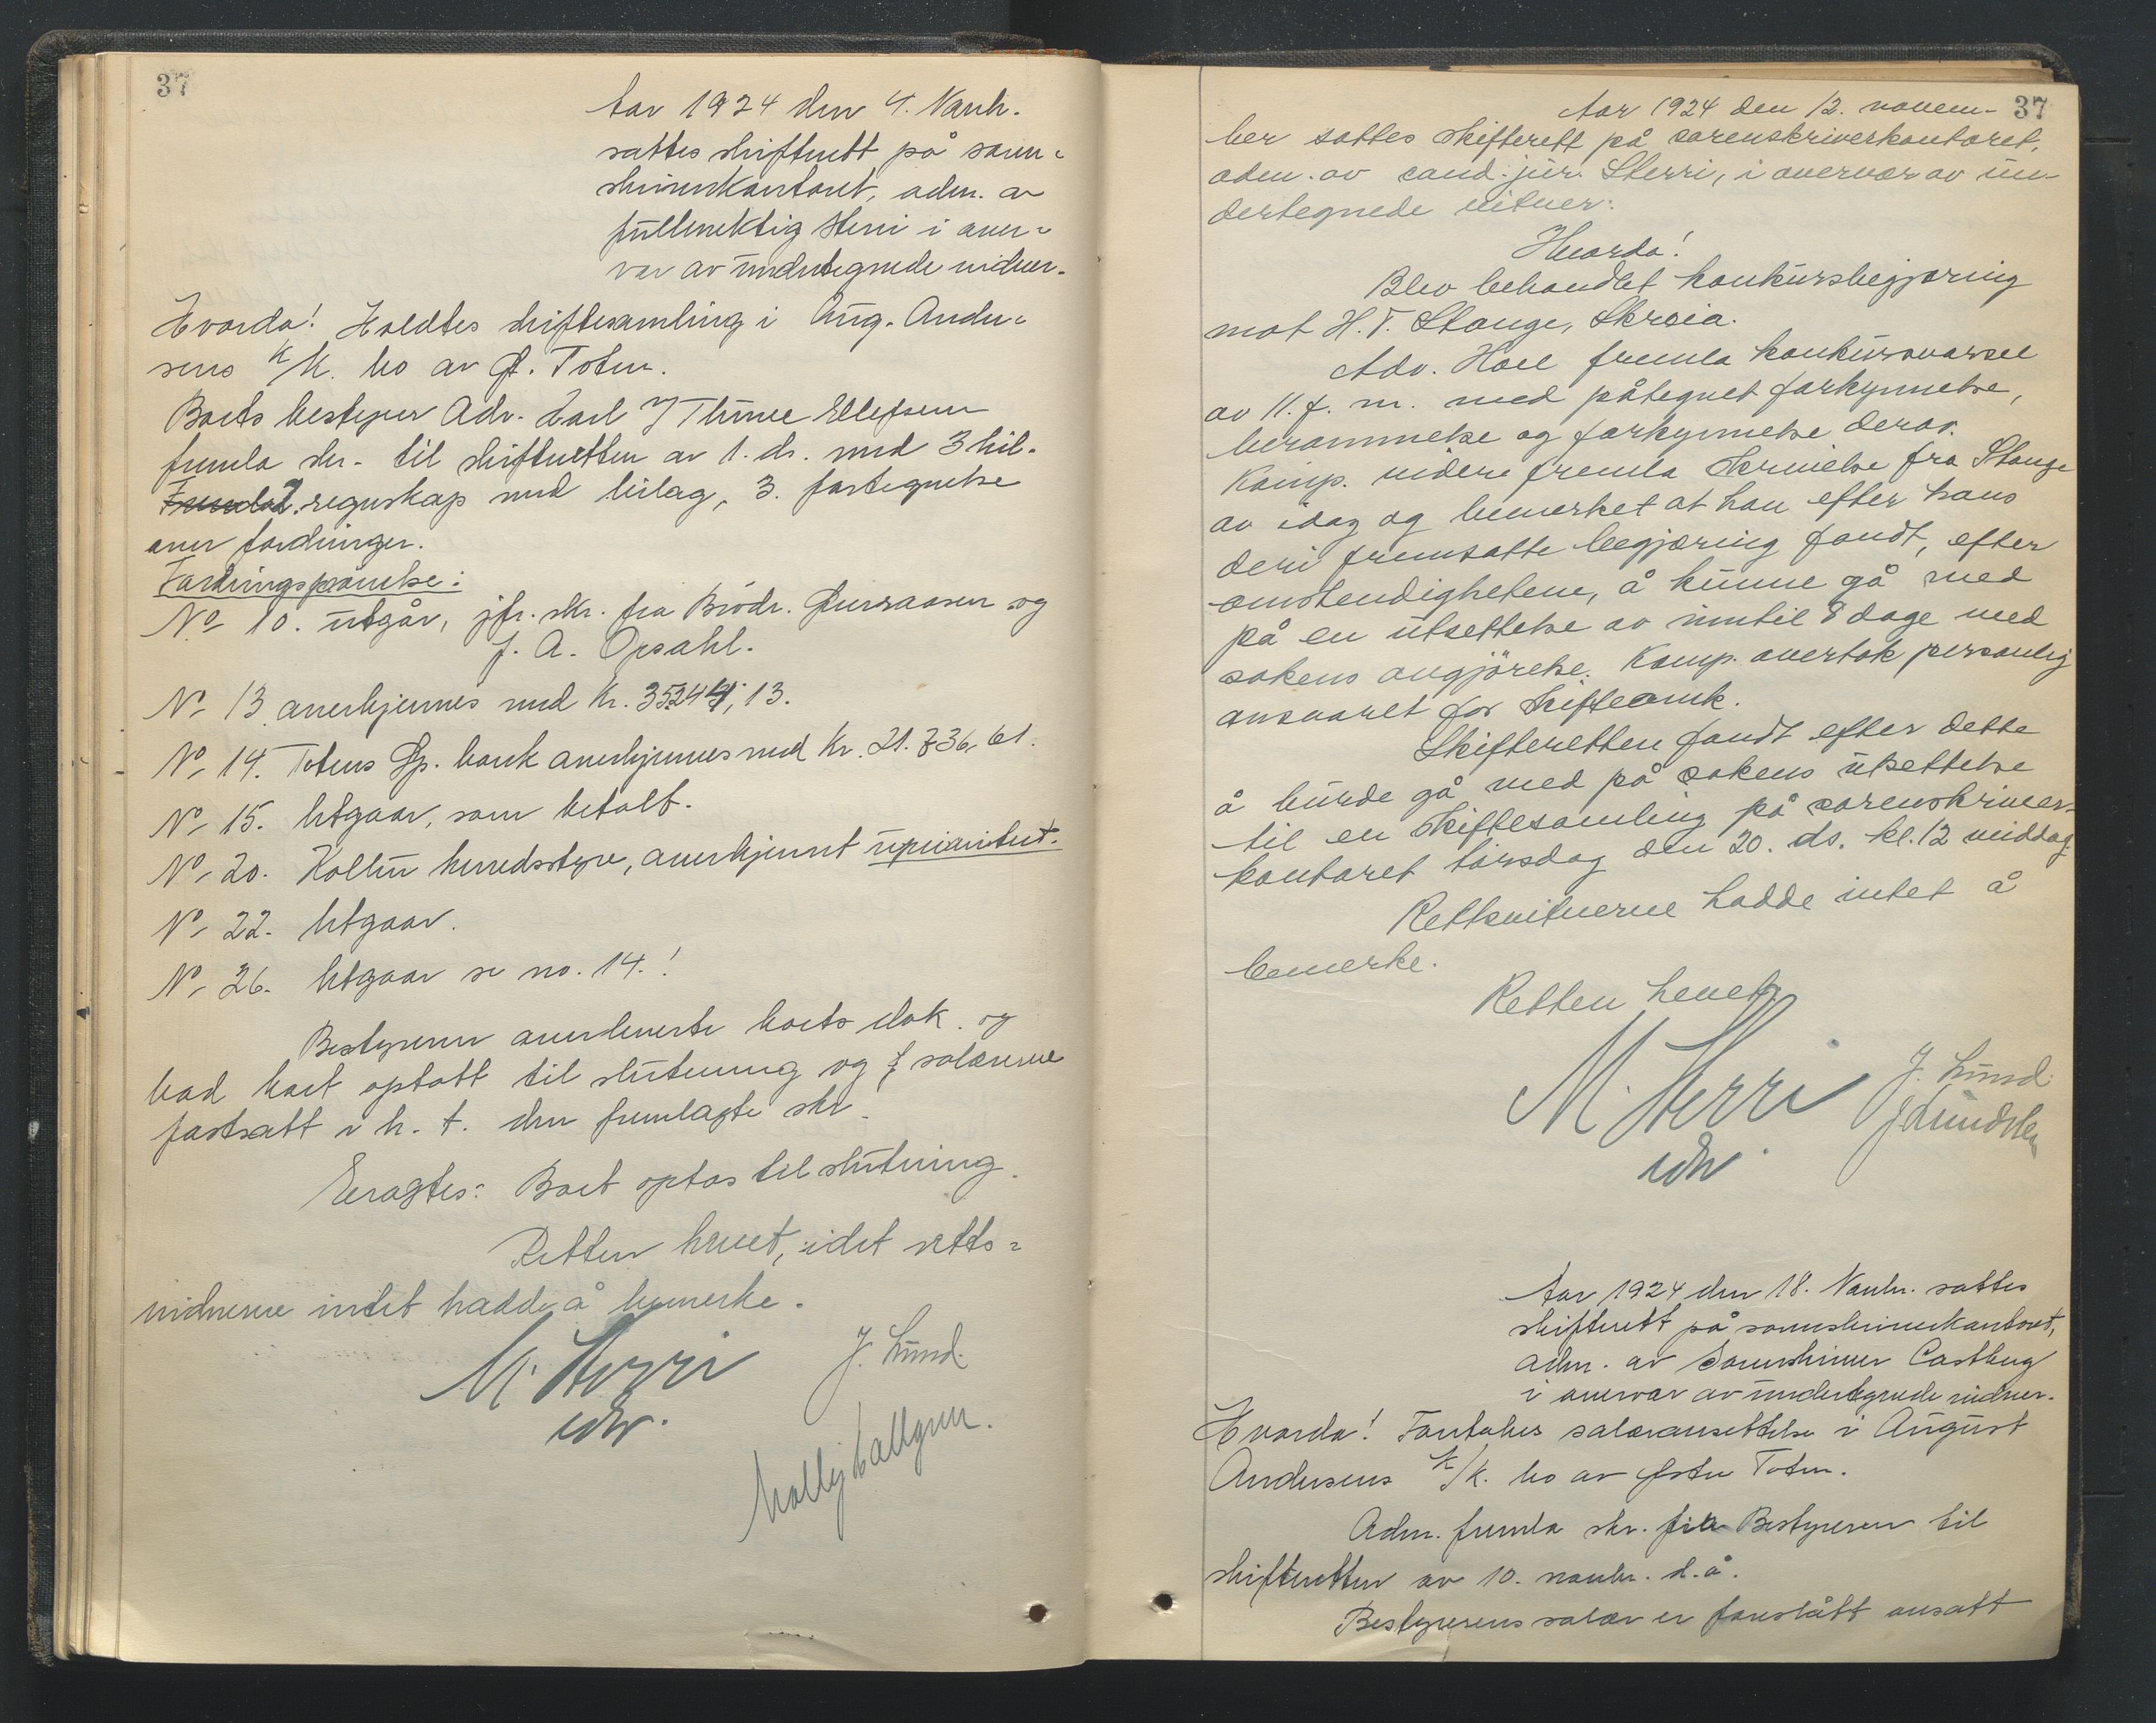 37
Aar 1924 den 4. Novbr.
sattes skifterett på soren-
skriverkontoret, adm. av
fullmektig Sterri i over-
vær av undertegnede vidner.
Hvorda! Holdtes skiftesamling i Aug. Ander-
sens K/K. bo av Ø. Toten.
Boets bestyrer Adv. Carl Thime Ellefsen
fremla skr. til skifteretten av 1. ds. med 3 bil.
2. regnskap med bilag, 3. fortegnelse
over fordringer.
Fordringsprøvelse:
No 10. utgår, jfr. skr. fra Brødr. og
J. A. Opsahl.
No 13 anerkjennes med Kr. 13.
No 14. Totens Sp. bank anerkjennes med Kr. 21.736,61.
No 15. Utgaar, som betalt.
No 20. Kolbu herredsstyre, anerkjent uprioritert.
No 22. Utgaar.
No 26. Utgaar se no. 14.!
Bestyreren overleverte boets dok. og
bad boet optatt til slutning og salærerne
fastsatt i h. t. den fremlagte skr.
Eragtes: Boet optas til slutning.
Retten hevet, idet retts-
vidnerne intet hadde å bemerke.
M. Sterri J. Lund.
edv.
37
Aar 1924 den 12. novem-
ber sattes skifterett på sorenskriverkontoret,
adm. av cand. jur. Sterri, i overvær av un-
dertegnede vitner:
Hvorda!
Blev behandlet konkursbegjæring
mot H. T. Stange, Skreia.
Adv. Hoel fremla konkursvarsel
av 11. f. m. med påtegnet forkynnelse,
berammelse og forkynnelse derav.
Komp. videre fremla skrivelse fra Stange
av idag og bemerket at han efter hans
deri fremsatte begjæring fandt, efter
omstendighetene, å kunne gå med
på en utsettelse av inntil 8 dage med
sakens avgjörelse. Komp. overtok personlig
ansvaret for skifteomk.
Skifteretten fandt efter dette
å burde gå med på sakens utsettelse
til en skiftesamling på sorenskriver-
kontoret torsdag den 20. ds. kl. 12 middag.
Rettsvitnerne hadde intet å
bemerke.
Retten hevet.
M. Sterri J. Lund.
edv.
Aar 1924 den 18. Novbr. sattes
skifterett på sorenskriverkontoret,
adm. av Sorenskriver Castberg
i overvær av undertegnede vidner.
Hvorda! Foretokes salæransettelse i August
Andersens K/K. bo av Østre Toten.
Adm. fremla skr. fra Bestyreren til
skifteretten av 10. novbr. d.å.
Bestyrerens salær er foreslått ansatt